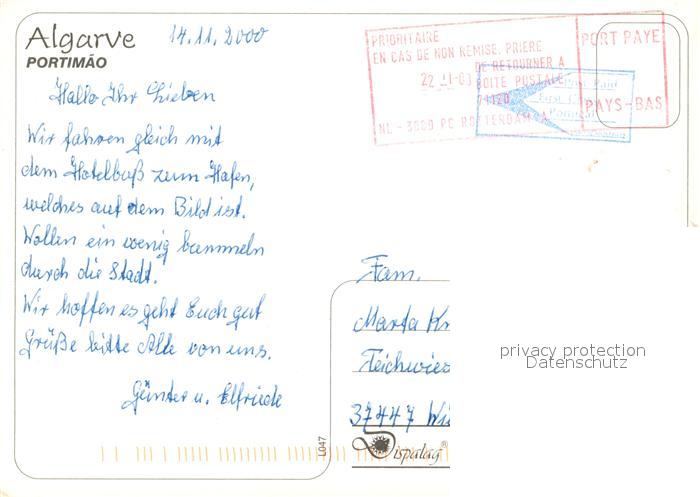 Algarve
PORTIMÃO
14.11.2000
PRIORITAIRE
EN CAS DE NON REMISE, PRIERE
DE RETOURNER A
22 -11-00 BOITE POSTALE
NL - 3000 PC ROTTERDAM
PORT PAYE
PAYS-BAS
Hallo Ihr Lieben
Wir fahren gleich mit
dem Hotelbuß zum Hafen,
welches auf dem Bild ist.
Wollen ein wenig bummeln
durch die Stadt.
Wir hoffen es geht Euch gut
Grüße bitte Alle von uns.
Günter u. Elfriede
Fam.
Marta Kr
Teichwies
37447 Wi
Dispalag®
L047
privacy protection
Datenschutz